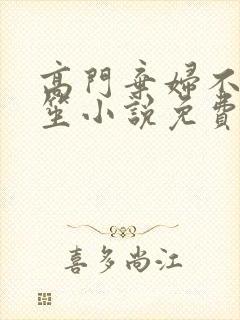 高門棄婦不
笙小說免費
喜多尚江